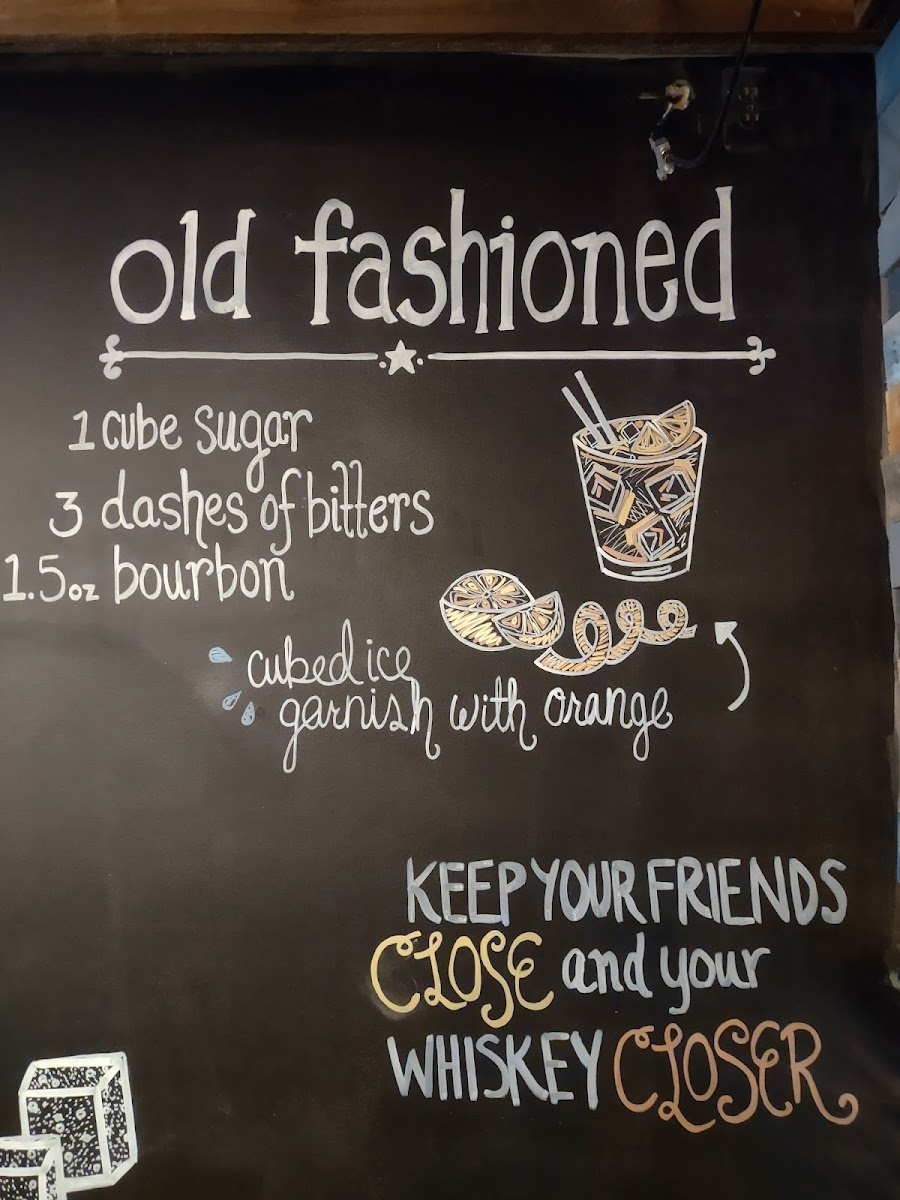 old fashioned
1 cube sugar
3 dashes of bitters
1.5oz bourbon
cubed ice
garnish with orange
KEEP YOUR FRIENDS
CLOSE and your
WHISKEY CLOSER